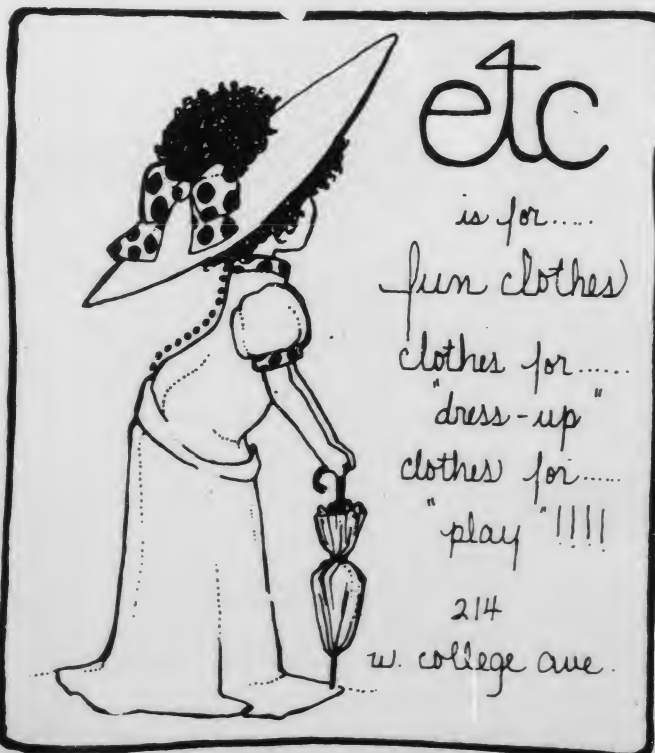 etc
is for.....
fun clothes
clothes for......
"dress-up"
clothes for......
"play" !!!!
214
w. college ave.